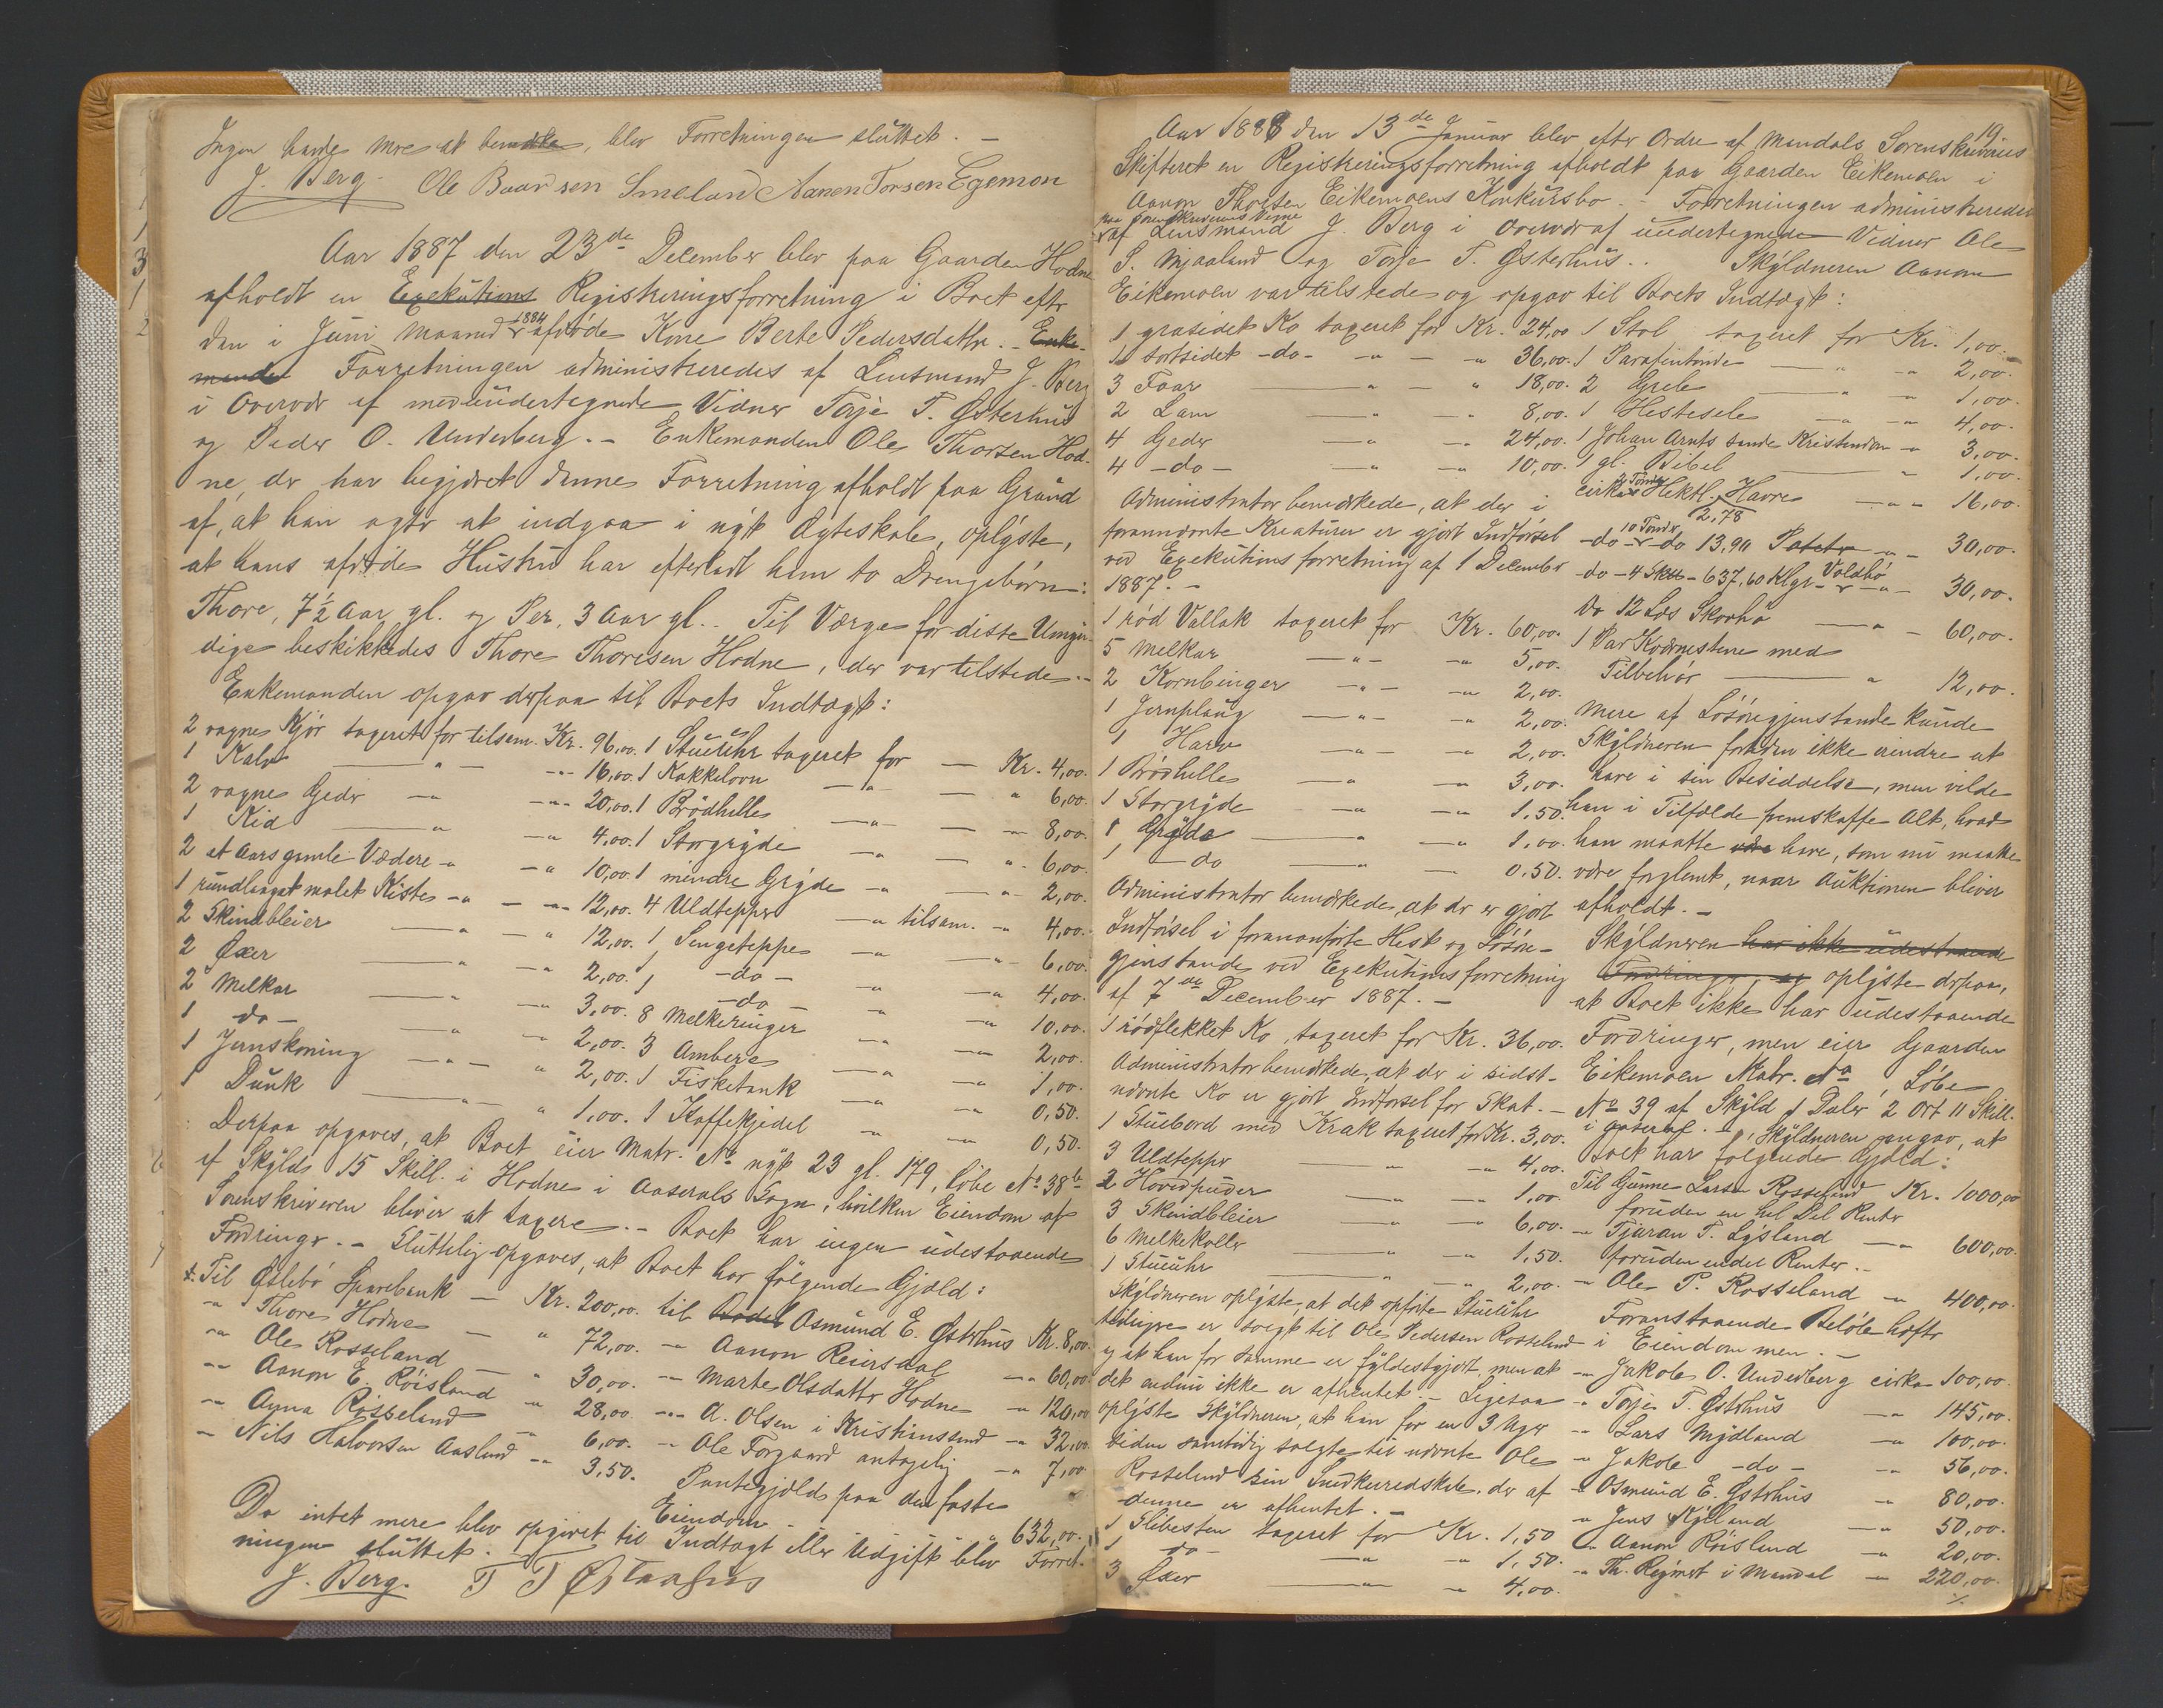 Ingen havde mere at bemærke, blev Forretningen sluttet. –
J. Berg. Ole Baardsen Smeland Aanen Torsen Egemon
Aar 1887 den 23de December blev paa Gaarden Hodne
afholdt en Exekutions Registreringsforretning i Boet efter
den i Juni Maaned 1884 afdøde Kone Berte Pedersdatter. – Enke-
manden Forretningen administreredes af Lensmand J. Berg
i Overvær af medundertegnede Vidner Torje T. Østerhus
og Peder O. Underberg. – Enkemanden Ole Thorsen Hod-
ne, der har begjæret denne Forretning afholdt paa Grund
af, at han agter at indgaa i nyt Ægteskab, oplyste,
at hans afdøde Hustru har efterladt ham to Drengebørn:
Thore, 7½ Aar gl. og Per, 3 Aar gl.. Til Værge for disse Umyn-
dige beskikkedes Thore Thoresen Hodne, der var tilstede. –
Enkemanden opgav derpaa til Boets Indtægt:
2 vagne Kjør taxeret for tilsam. Kr. 96,00. 1 Stueuhr taxeret for — Kr. 4,00.
1 Kalv — " — 16,00. 1 Kakkelovn — " 6,00.
2 vagne Geder — " — 20,00. 1 Brødhelle — " — 8,00.
1 Kid — " — 4,00. 1 Storgryde — " — 6,00.
2 et Aars gamle Vædere — " 10,00. 1 mindre Gryde — " — 2,00.
1 rundlaaget malet Kiste — " — 12,00. 4 Uldtepper — " tilsam. — 4,00.
2 Skindbleier — " — 12,00. 1 Sengeteppe — " — 6,00.
2 Øxer — " — 2,00. 1 – do – — " 4,00.
2 Melkar — " — 3,00. – do – — " 10,00.
1 do – — " — 2,00. 8 Melkeringer — " 2,00.
1 Jernskoning — " — 2,00. 3 Ambere — " 1,00.
1 Dunk — " 1,00. 1 Fisketank — " 0,50.
1 Kaffekjedel — " 0,50.
Derpaa opgaves, at Boet eier Matr. No nyt 23 gl. 179, Løbe No 38b
af Skyld 15 Skill. i Hodne i Aaserals Sogn, hvilken Eiendom af
Sorenskriveren bliver at taxere. – Boet har ingen udestaaende
Fordringer. – Sluttelig opgaves, at Boet har følgende Gjæld:
Til Øslebø Sparebank — Kr. 200,00. til Bodel Osmund E. Østerhus Kr. 8,00.
" Thore Hodne — " 72,00. — Aanon Reiersdal — 60,00
" Ole Rosseland — " 30,00. — Marte Olsdatter Hodne — 120,00
" Aanon E. Røisland — " 28,00. — A. Olsen i Kristianssand — 32,00.
" Anna Rosseland — " 6,00. — Ole Forgaard antagelig — 7,00
— Nils Halvorsen Aasland — 3,50. Pantegjæld paa den faste
Eiendom — " 632,00.
Da intet mere blev opgivet til Indtægt eller Udgift blev Forret-
ningen sluttet.
J. Berg. T T Østerhus
19.
Aar 1888 den 13de Januar blev efter Ordre af Mandals Sorenskriveries
Skifteret en Registreringsforretning afholdt paa Gaarden Eikemoen i
Aanon Thorsen Eikemoens Konkursbo. – Forretningen administreredes
paa Sorenskriverens Vegne
af Lensmand J. Berg i Overvær af undertegnede Vidner Ole
S. Mjaaland og Torje T. Østerhus.. Skyldneren Aanon
Eikemoen var tilstede og opgav til Boets Indtægt:
1 grasidet Ko taxeret for Kr. 24,00
1 sortsidet – do – — " 36,00.
3 Faar — " 18,00.
2 Lam — " 8,00.
4 Geder — " 24,00.
4 – do – — " 10,00.
Administrator bemærkede, at der i
forannævnte Kreaturer er gjort Indførsel
ved Exekutionsforretning af 1 December
1887. –
1 rød Vallak taxeret for Kr. 60,00.
5 Melkar — " — 5,00.
2 Kornbinger — " — 2,00.
1 Jernplaug — " — 2,00.
1 Harv — " — 2,00.
1 Brødhelle — " 3,00.
1 Storgryde — " 1,50.
1 Gryde — " 1,00.
1 – do — 0,50.
Administrator bemærkede, at der er gjort
Indførsel i forananførte Hest og Løsøre-
gjenstande ved Exekutionsforretning
af 7de December 1887. –
1 rødflekket Ko, taxeret for Kr. 36,00.
Administrator bemærkede, at der i sidst-
nævnte Ko er gjort Indførsel for Skat. –
1 Stuebord med Krak taxeret for Kr. 3,00.
3 Uldtepper — " 4,00.
2 Hovedpuder — " 1,00.
3 Skindbleier — " 6,00.
6 Melkekoller — " 1,50.
1 Stueuhr — " 2,00.
Skyldneren oplyste, at det opførte Stueuhr
tidligere er solgt til Ole Pedersen Rosseland
og at han for samme er fyldestgjort, men at
det endnu ikke er afhentet. – Ligesaa
oplyste Skyldneren, at han for en 3 Uger
siden samtidig solgte til nævnte Ole
Rosseland sin Snedkerredskab, der af
denne er afhentet. –
1 Slibesten taxeret for Kr. 1,50
1 do – — " 1,50.
3 Øxer — " 4,00.
1 Stol taxeret for Kr. 1,00.
1 Parafintønde — " 2,00.
2 Greb — " 1,00.
1 Hestesele — " 4,00.
1 Johan Arnts sande Kristendom — 3,00.
1 gl. Bibel — " 1,00.
2 Tønder
cirka Hektl. Havre — " 16,00.
2,78
10 Tønder
– do – do 13,90 Poteter — 30,00.
– do – 4 Sk℔ – 637,60 Klgr. Voldhø — 30,00.
Do 12 Læs Skovhø — " — 60,00.
1 Par Kværnstene med
Tilbehør — " 12,00.
Mere af Løsøregjenstande kunde
Skyldneren foruden ikke erindre at
have i sin Besiddelse, men vilde
han i Tilfælde fremskaffe Alt, hvad
han maatte være have, som nu maatte
være forglemt, naar Auktionen bliver
afholdt. –
Skyldneren har ikke udestaaende
Fordringer, og oplyste derpaa,
at Boet ikke har udestaaende
Fordringer, men eier Gaarden
Eikemoen Matr. No , Løbe
No 39 af Skyld 1 Daler 2 Ort 11 Skill.
i Aaseral. – Skyldneren opgav, at
Boet har følgende Gjæld:
Til Gunne Larsen Rosseland Kr. 1000,00
foruden en hel Del Renter
— Tjaran T. Lysland — 600,00.
foruden endel Renter. –
— Ole P. Rosseland — 400,00.
Foranstaaende Beløb hæfter
i Eiendommen. –
— Jakob O. Underberg cirka 100,00.
— Torje T. Østerhus — 145,00.
— Lars Mydland — 100,00.
— Jakob – do – — 56,00.
— Osmund E. Østerhus — 80,00.
— Jens Kyland — 50,00.
— Aanon Røisland — 20,00.
— Th. Regevert i Mandal — 220,00.